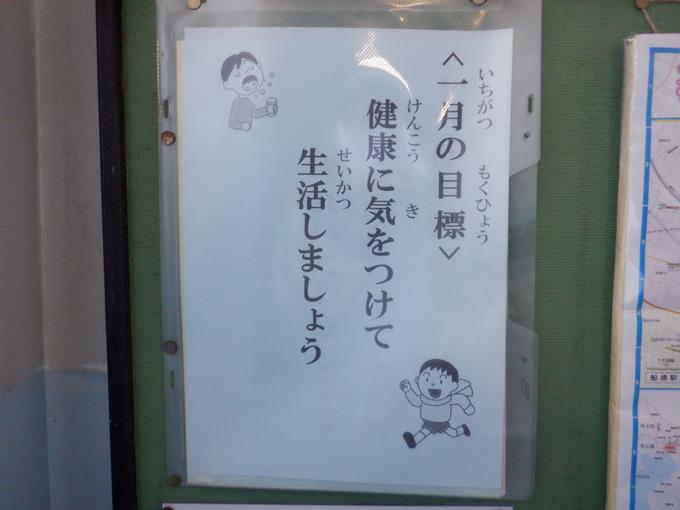 <一月の目標>
いちがつ もくひょう
健康に気をつけて
けんこう き
生活しましょう
せいかつ